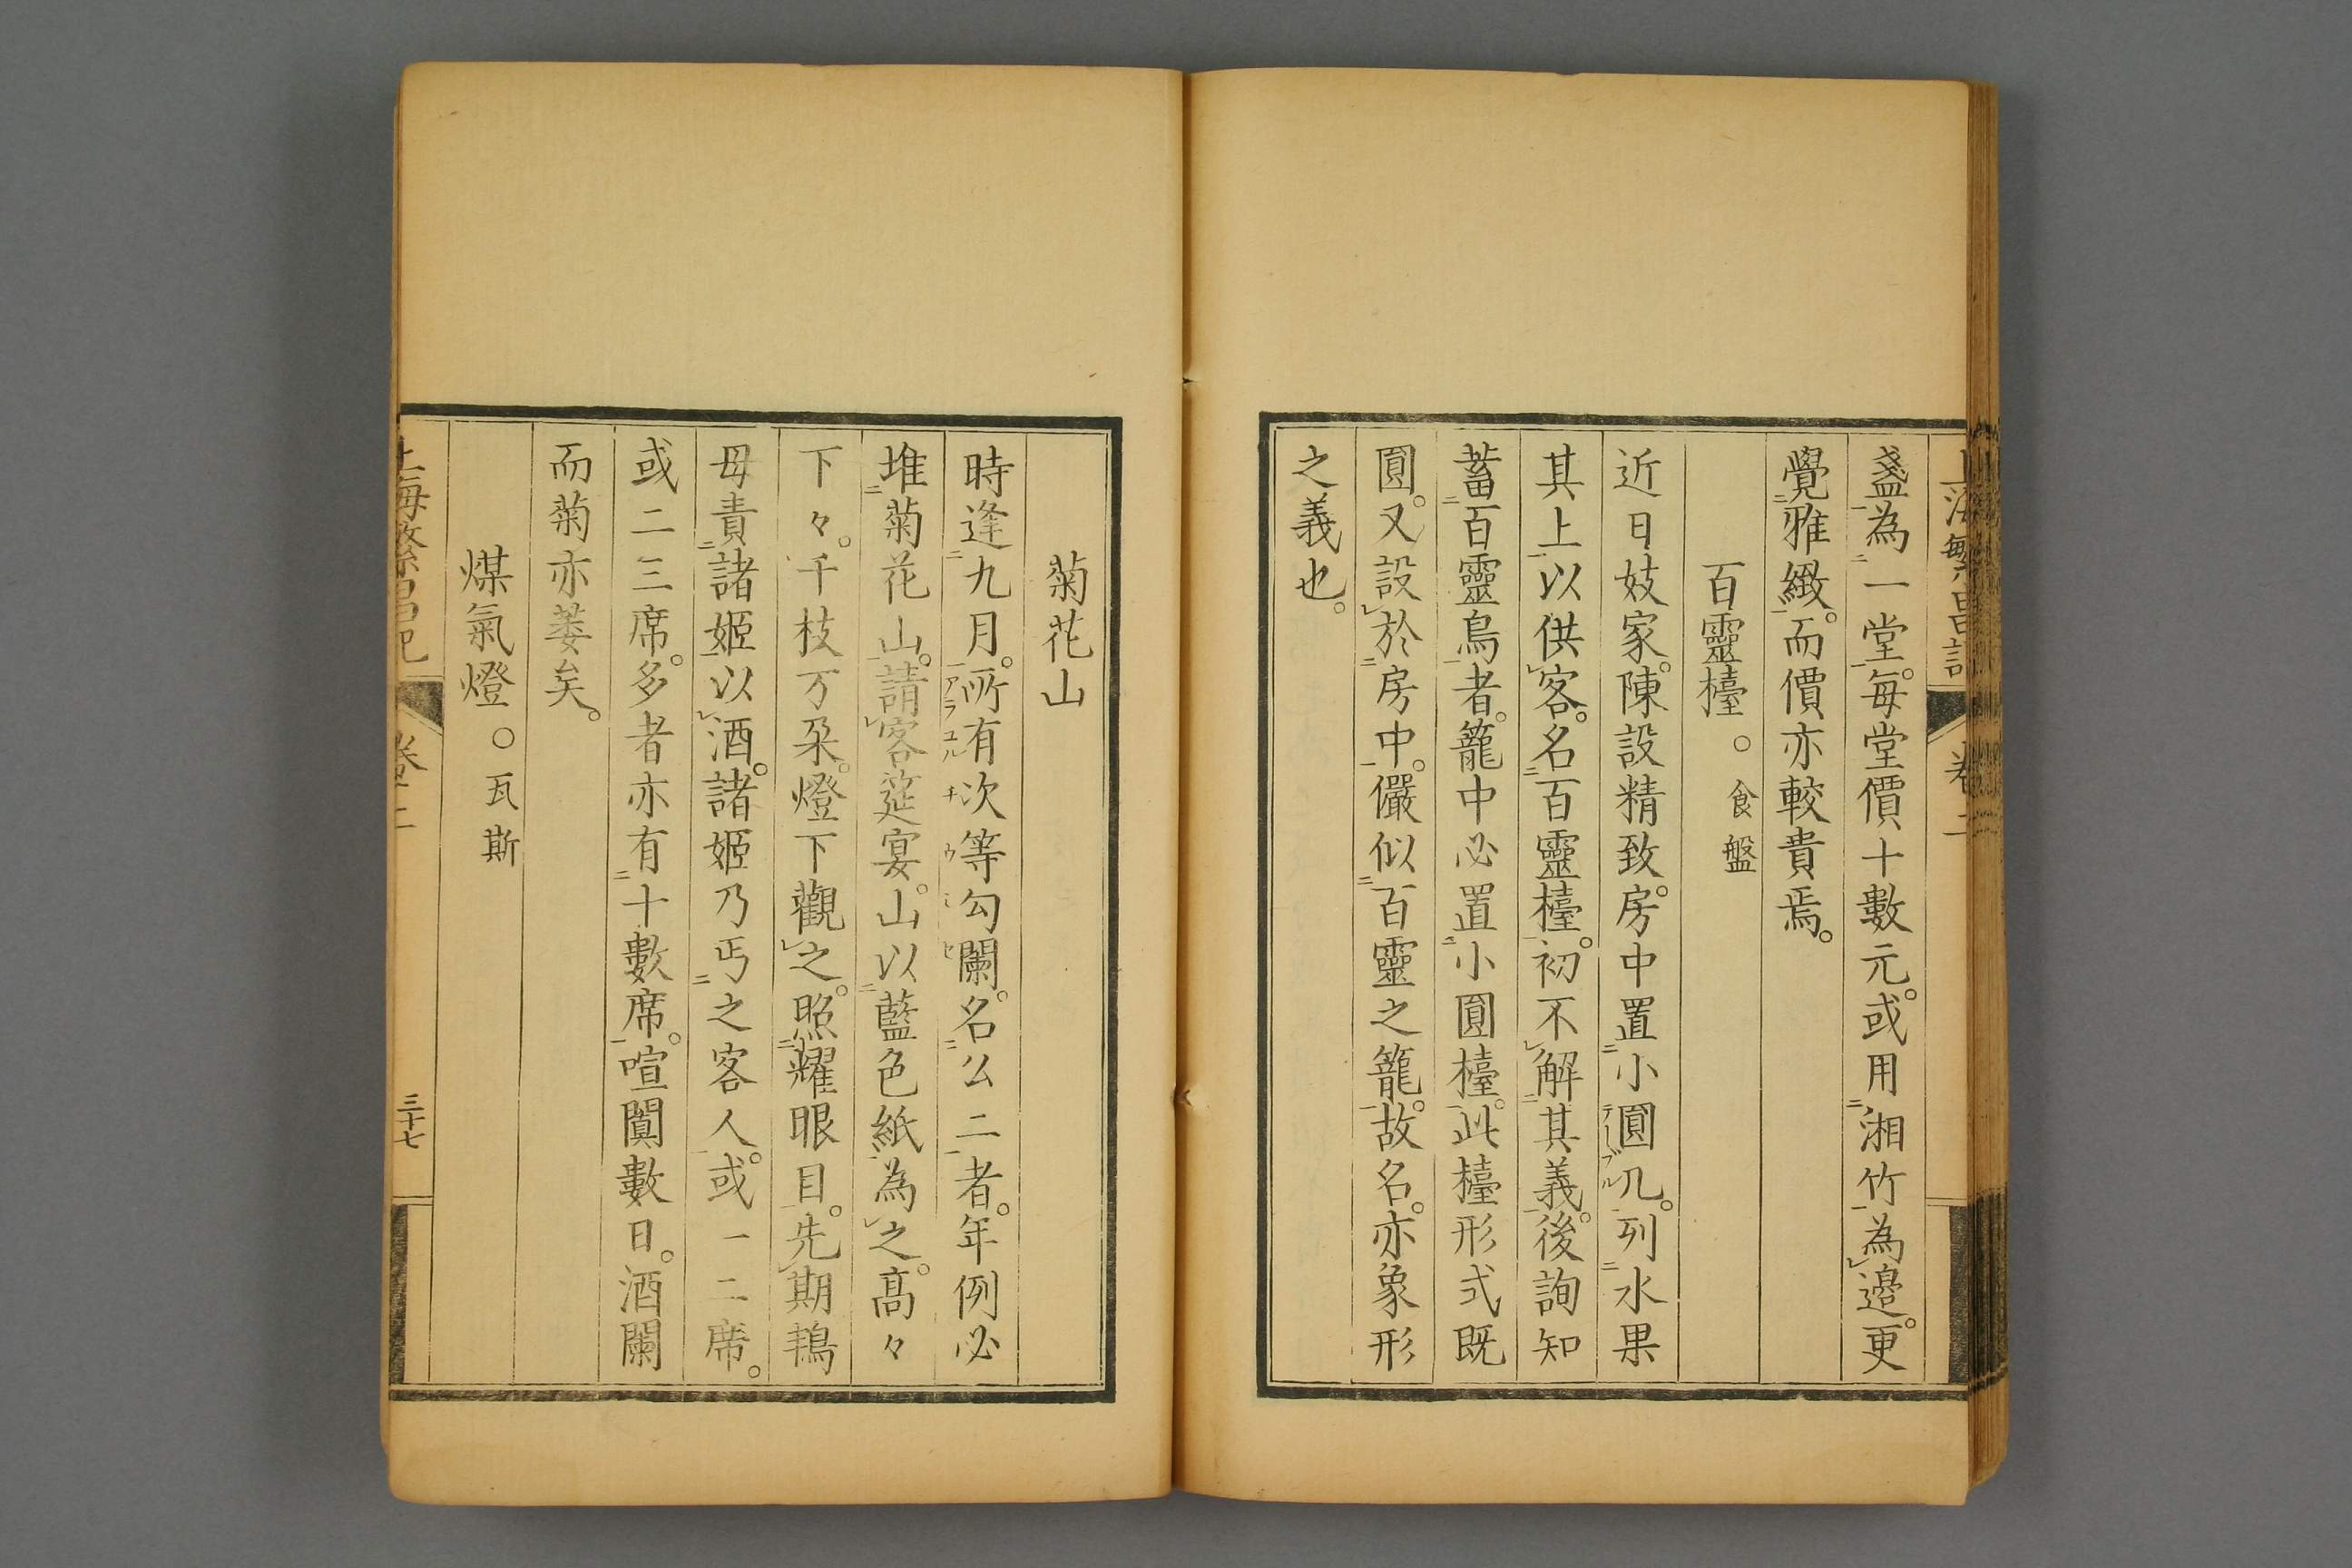 盞為一堂。每堂價十數元。或用湘竹為邉。更
覺雅緻。而價亦較貴焉。
百靈檯 ○食盤
近日妓家。陳設精致。房中置小圓几。列水果
テーブル
其上以供客。名百靈檯。初不解其義。後詢知
蓄百靈鳥者。籠中必置小圓檯。此檯形式既
圓。又設於房中。儼似百靈之籠。故名。亦象形
之義也。
菊花山
時逢九月。所有次等勾闌。名公二者。年例必
アラユル チ ウ ミ セ
堆菊花山。請客筵宴。山以藍色紙為之。髙々
下々。千枝万朶。燈下觀之。照耀眼目。先期鴇
母責諸姬以酒。諸姬乃丐之客人。或一二席。
或二三席。多者亦有十數席。喧闐數日。酒闌
而菊亦萎矣。
煤氣燈 ○瓦斯
上海繁昌記 卷二 三十七